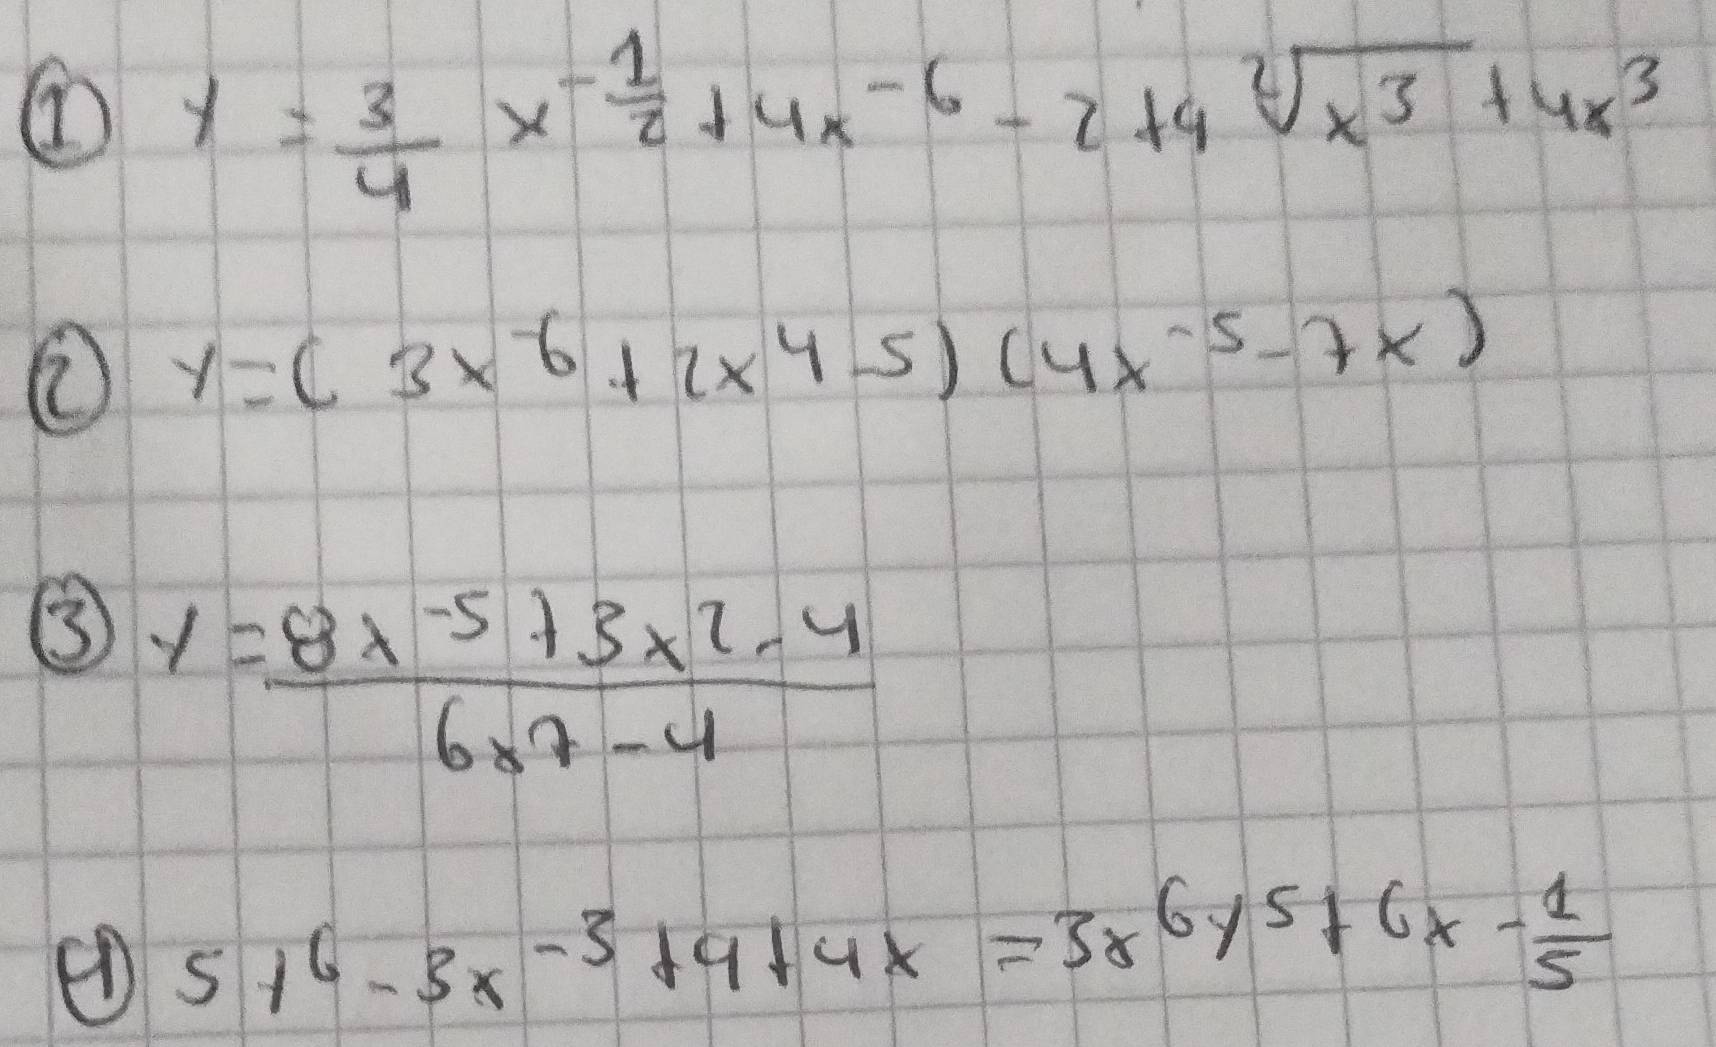 ① y = 3/4 x^-1/2 + 4x^-6 - 2 + 9 ²√x³ + 4x³
② y = (3x^-6 + 2x^4 - 5) (4x^-5 - 7x)
③ y = 8x^-5 + 3x^2 - 4
6x^7 - 4
④ 5y^6 - 3x^-3 + 9 + 4x = 3x^6y^5 + 6x^-1/5